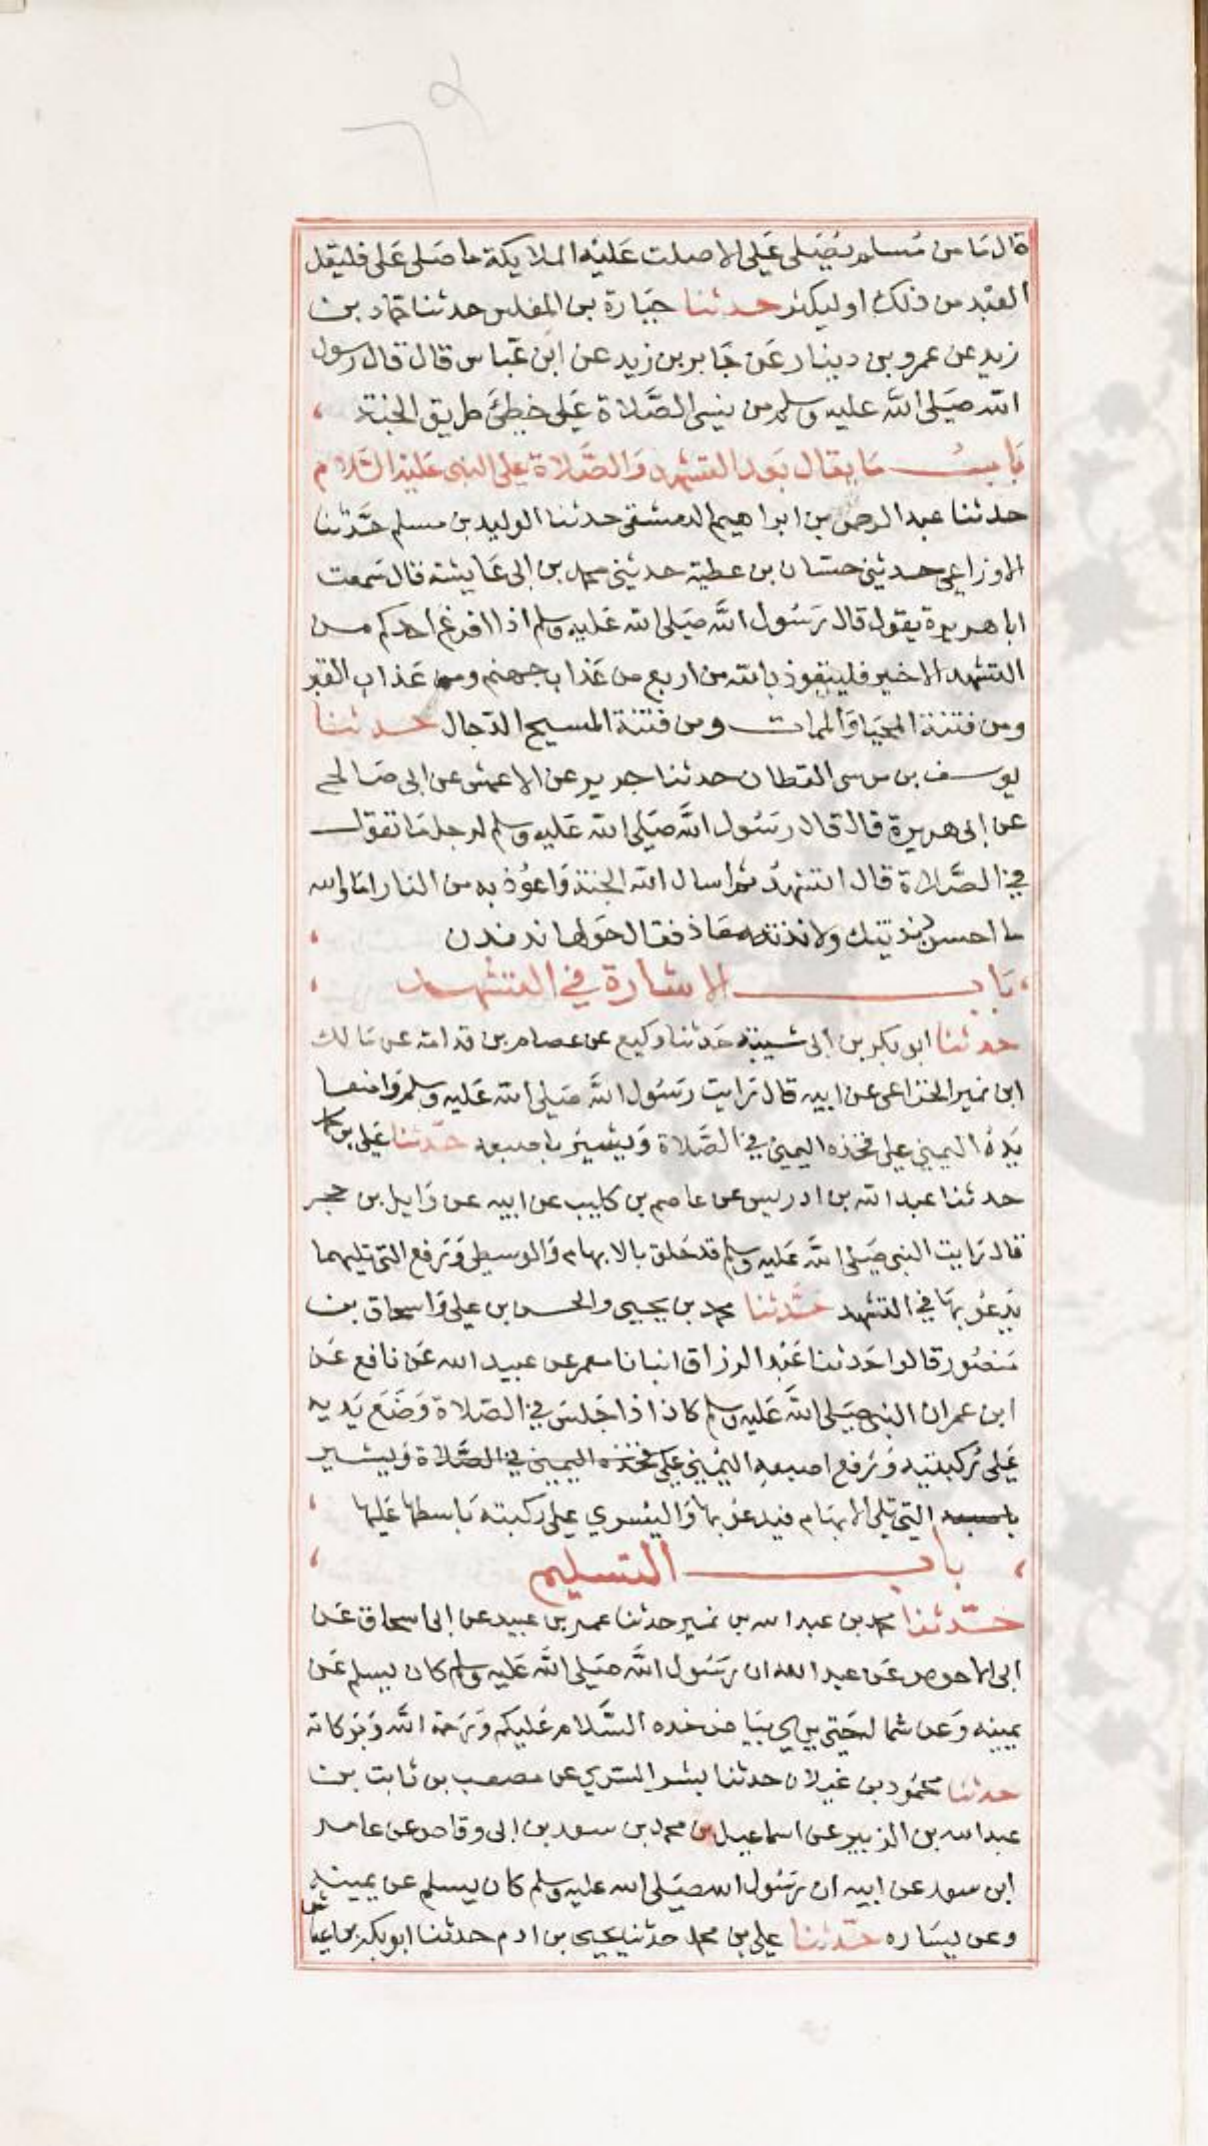 قال ما من مسلم يصلي علي الا صلت عليه الملايكة ما صلى علي فليقل
العبد من ذلك او ليكثر حدثنا جبارة بن المغلس حدثنا حماد بن
زيد عن عمرو بن دينار عن جابر بن زيد عن ابن عباس قال قال رسول
الله صلى الله عليه وسلم من نسي الصلاة علي خطئ طريق الجنة
باب ما يقال بعد التشهد والصلاة على النبي عليه السلام
حدثنا عبد الرحمن بن ابراهيم الدمشقي حدثنا الوليد بن مسلم حدثنا
الاوزاعي حدثني حسان بن عطية حدثني محمد بن ابي عايشة قال سمعت
ابا هريرة يقول قال رسول الله صلى الله عليه وسلم اذا افرغ احدكم من
التشهد الاخير فليتعوذ بالله من اربع من عذاب جهنم ومن عذاب القبر
ومن فتنة المحيا والممات ومن فتنة المسيح الدجال حدثنا
يوسف بن موسى القطان حدثنا جرير عن الاعمش عن ابي صالح
عن ابي هريرة قال قال رسول الله صلى الله عليه وسلم لرجل ما تقول
في الصلاة قال اتشهد ثم اسال الله الجنة واعوذ به من النار اما والله
ما احسن دندنتك ولا دندنة معاذ فقال حولها ندندن
باب الاشارة في التشهد
حدثنا ابو بكر بن ابي شيبة حدثنا وكيع عن عصام بن قدامة عن مالك
ابن نمير الخزاعي عن ابيه قال رايت رسول الله صلى الله عليه وسلم واضعا
يده اليمنى على فخذه اليمنى في الصلاة ويشير باصبعه حدثنا علي بن محمد
حدثنا عبد الله بن ادريس عن عاصم بن كليب عن ابيه عن وايل بن حجر
قال رايت النبي صلى الله عليه وسلم قد حلق بالابهام والوسطى ورفع التي تليهما
يدعو بها في التشهد حدثنا محمد بن يحيى والحسن بن علي واسحاق بن
منصور قالوا حدثنا عبد الرزاق انبانا معمر عن عبيد الله عن نافع عن
ابن عمر ان النبي صلى الله عليه وسلم كان اذا جلس في الصلاة وضع يديه
على ركبتيه ورفع اصبعه اليمنى على فخذه اليمين في الصلاة ويشير
باصبعه التي تلي الابهام فيدعو بها واليسرى على ركبته باسطها عليها
باب التسليم
حدثنا محمد بن عبد الله بن نمير حدثنا عمر بن عبيد عن ابي اسحاق عن
ابي الاحوص عن عبد الله ان رسول الله صلى الله عليه وسلم كان يسلم عن
يمينه وعن شماله حتى يرى بياض خده السلام عليكم ورحمة الله وبركاته
حدثنا محمود بن غيلان حدثنا بشر السري عن مصعب بن ثابت بن
عبد الله بن الزبير عن اسماعيل بن محمد بن سعد بن ابي وقاص عن عامر
ابن سعد عن ابيه ان رسول الله صلى الله عليه وسلم كان يسلم عن يمينه
وعن يساره حدثنا علي بن محمد حدثنا يحيى بن ادم حدثنا ابو بكر بن عياش